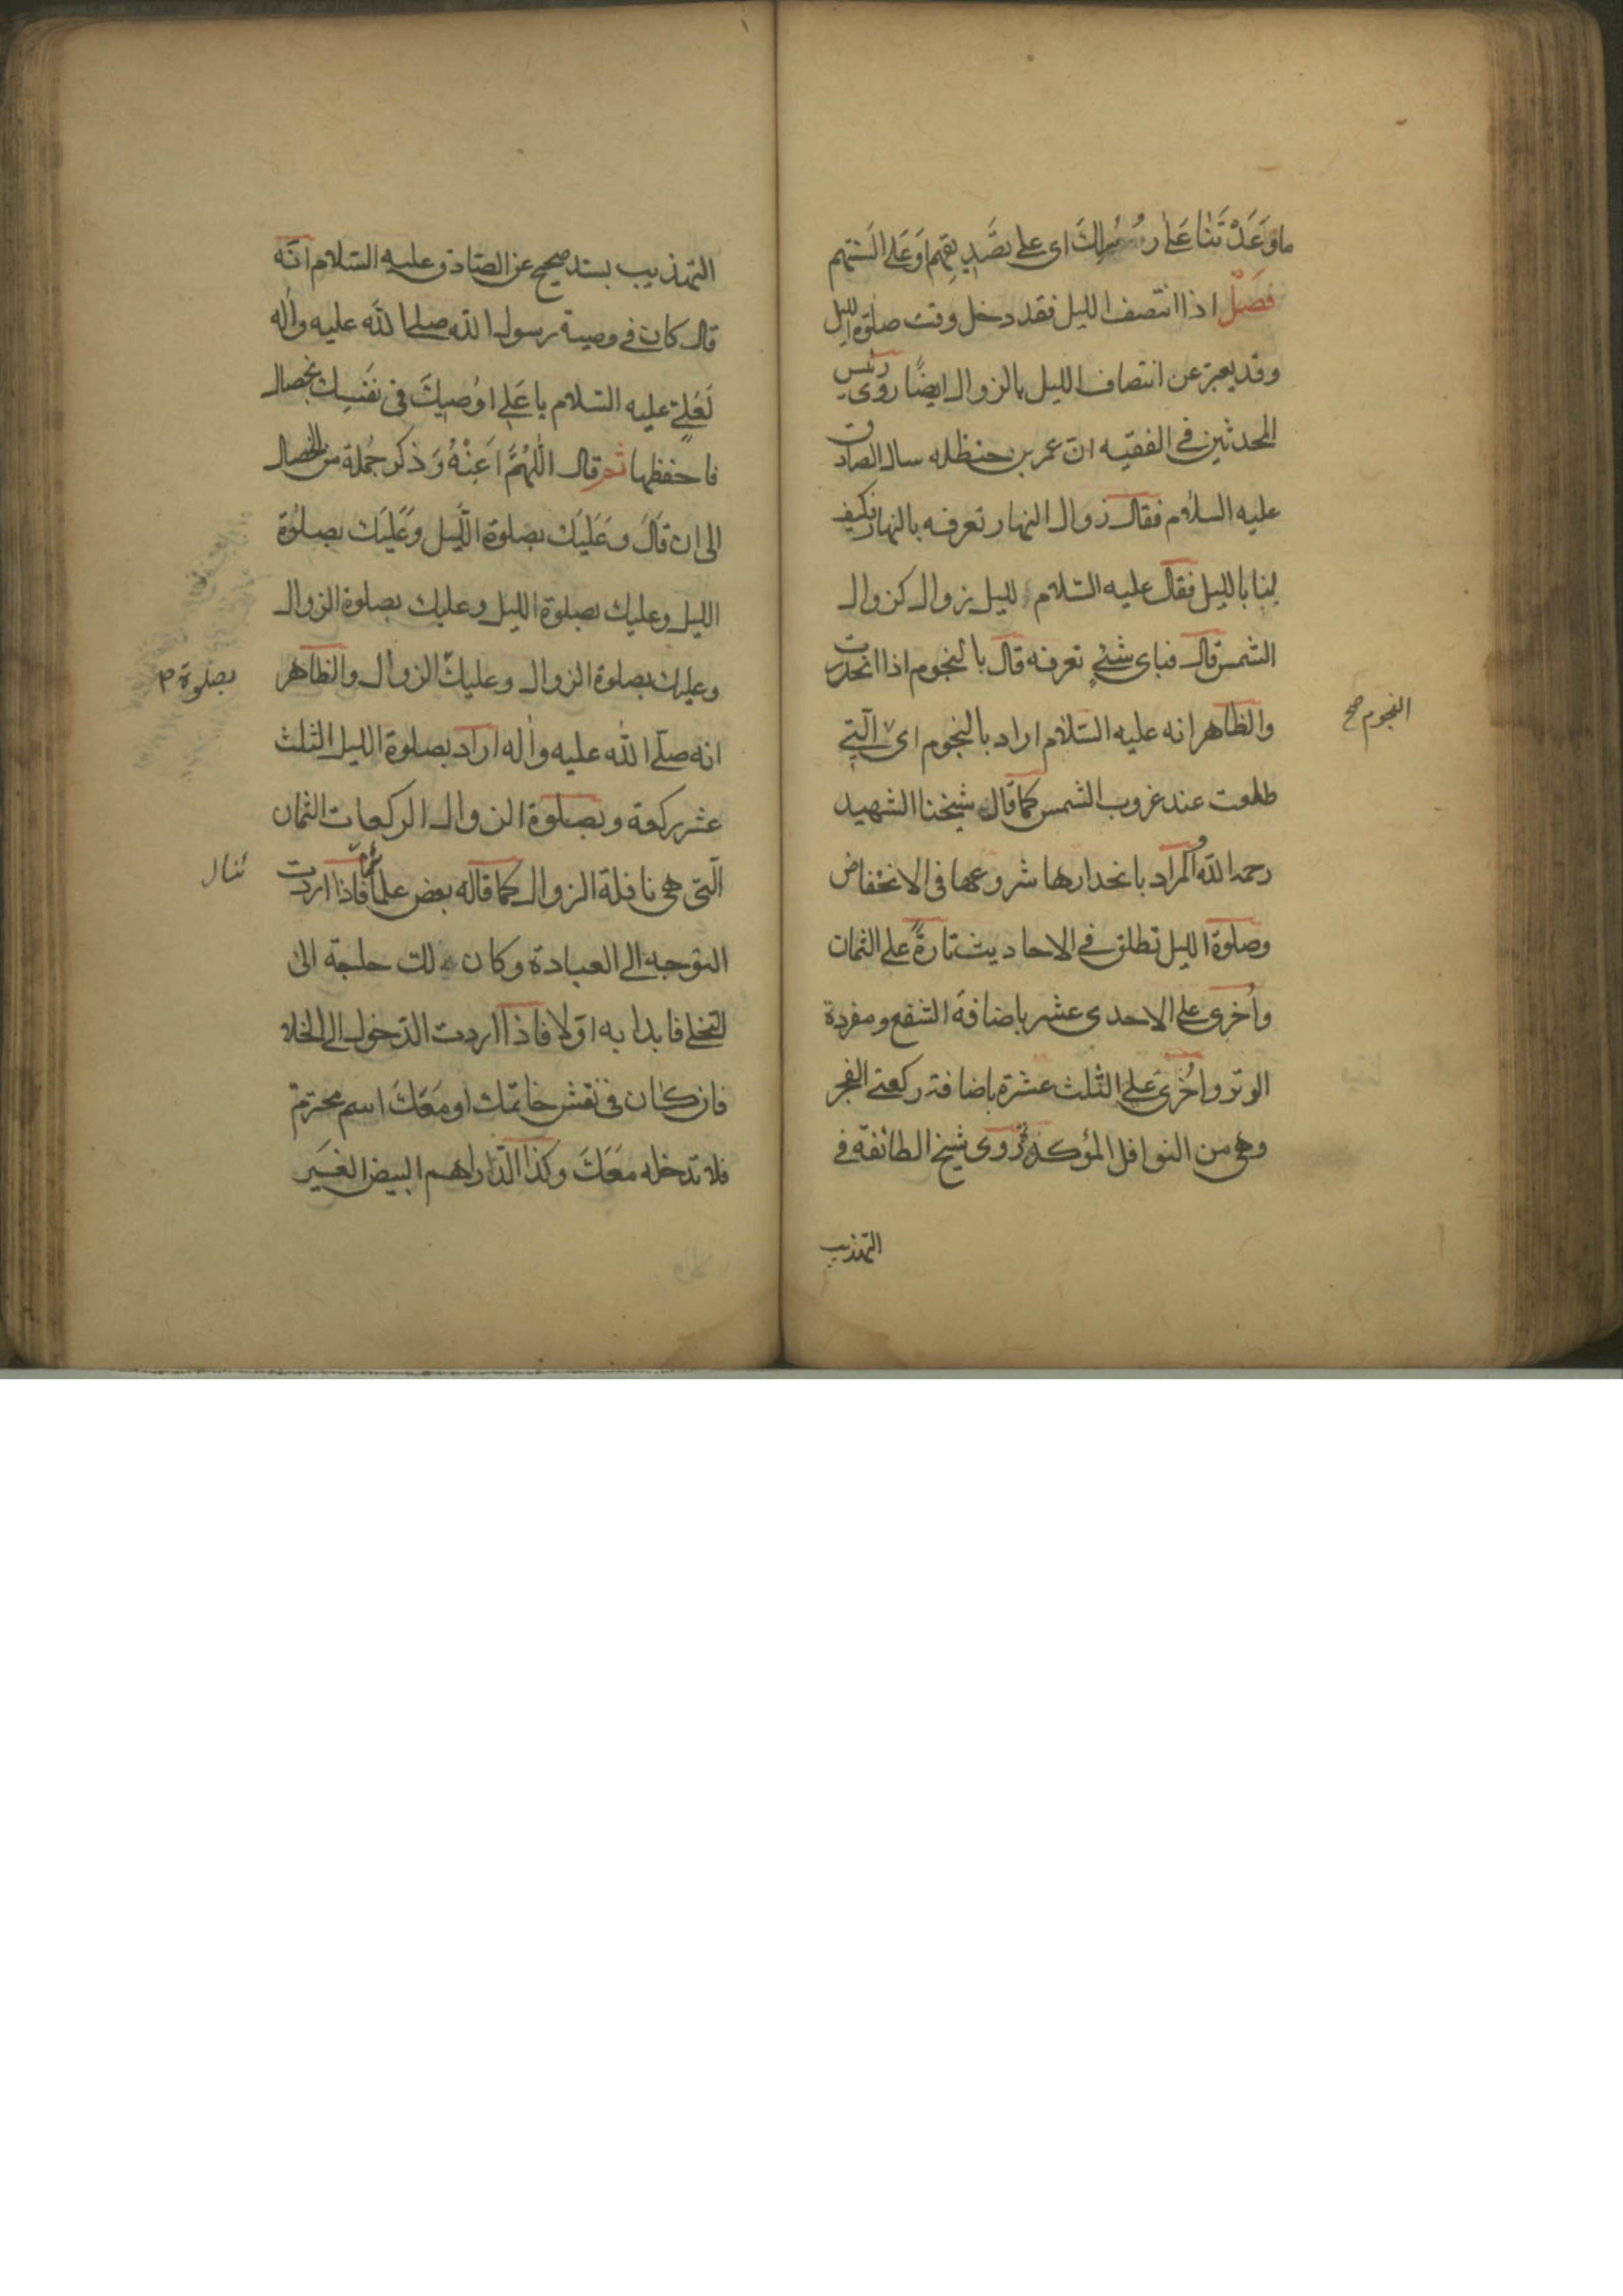 ما وَعَدْتَنا عَلٰى رُسُلِكَ اى على تصَّدِيقِهِم اَوعَلى اَلسنتهم
فصَلْ اذا انتصف الليل فقد دخل وقت صلٰوة الليل
وقد يعبر عن انتصاف الليل بالزوال ايضًا روى رئيس
المحدثين فى الفقيه ان عمر بن حنظله سال الصادق
عليه السلام فقال زوال النهار نعرفه بالنهار فكيف
لنا بالليل فقال عليه السّلام لليل زوال كزوال
الشمس قال فباى شئٍ نعرفه قال بالنجوم اذا انحدرت
والظاهر انه عليه السّلام اراد بالنجوم اى الّتى
النجوم صح
طلعت عند غروب الشمس كما قال شيخنا الشهيد
رحمه الله والمراد بانحدارها شروعها فى الانخفاض
وصلوة الليل تطلق فى الاحاديث تارةً على الثمان
واُخرى على الاحدى عشر باضافة الشفع ومفردة
الوتر واُخرى على الثلث عشرة باضافة ركعتى الفجر
وهى من النوافل المؤكدة روى شيخ الطائفة فى
التهذيب
التهذيب بسند صحيح عن الصّادق عليه السّلام انّه
قال كان فى وصية رسول الله صلى الله عليه واٰله
لَعَلىٍّ عليه السّلام يا عَلى اوُصيكَ فى نَفسِك بخصال
فاحفظها ثم قال اَللّٰهُمَّ اَعِنْهُ وَذكر جُملة من الخصال
الى ان قَالَ وَعَلَيَك بصلوة اللَّيل وَعَليَك بصلٰوة
الليل وعليك بصلوة الليل وعليك بصلوة الزوال
وعليك بصلوة الزوال وعليك الزوال والظاهر
بصلوة م
انه صلّى الله عليه واٰله اراد بصلوة الليل الثلث
عشر ركعة وبصلوة الزوال الركعات الثمان
الّتى هى نافلة الزوال كما قاله بعض علمائنا فاذا اردت
التوجه الى العبادة وكان لك حاجة الى
التخلى فابدا به اوّلا فاذا اردت الدّخول الى الخلا
فان كان فى نقش خاتمك او مَعَكَ اسم محترم
فلا تدخله مَعَكَ وكذا الدّراهم البيض الغَير